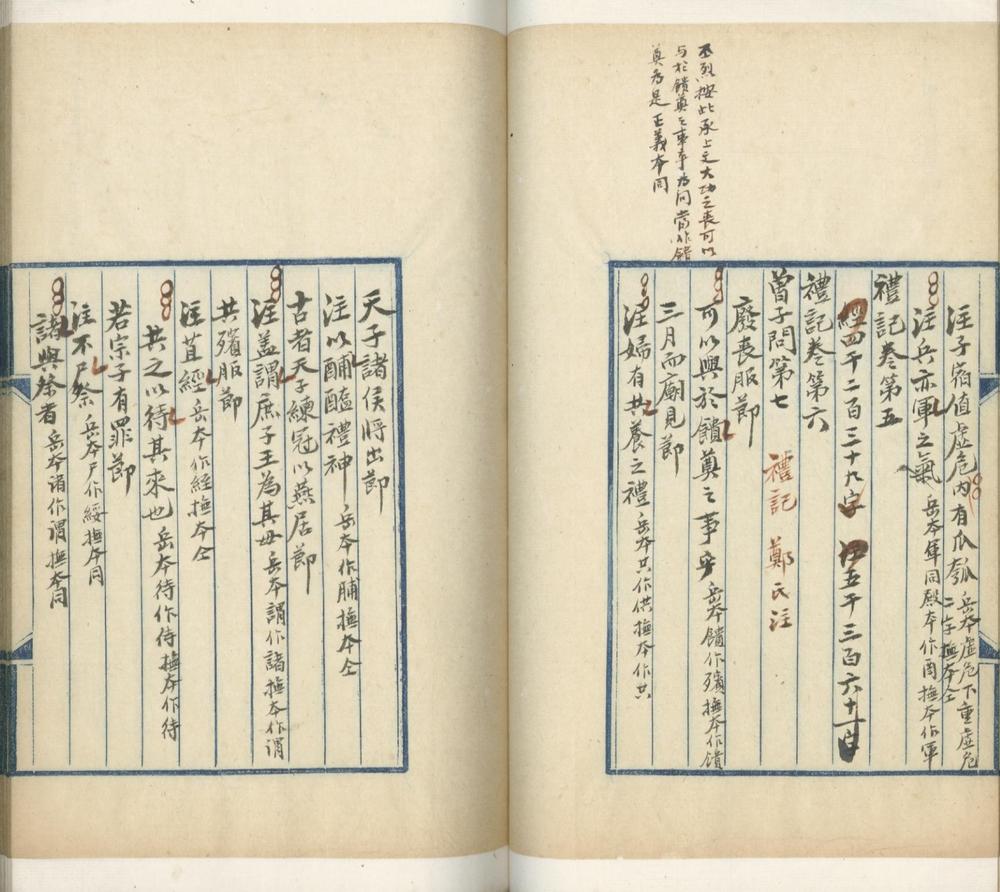 丕烈按此承上文大功之喪可以
与於饋奠之事乎為問當作饋
奠為是正義本同
注子宿值虛危內有瓜瓠 岳本虛危下重虛危
二字撫本仝
注兵亦軍之氣 岳本軍同殿本作同撫本作軍
禮記卷第五
經四千二百三十九字 注五千三百六十一
禮記卷第六
曾子問第七 禮記 鄭氏注
廢喪服節
可以與於饋奠之事乎 岳本饋作殯撫本作饋
三月而廟見節
注婦有共養之禮 岳本共作供撫本作共
天子諸侯將出節
注以酺醢禮神 岳本作脯撫本仝
古者天子練冠以燕居節
注蓋謂庶子王為其母 岳本謂作諸撫本作謂
共殯服節
注苴絰 岳本作絰撫本仝
共之以待其來也 岳本待作侍撫本作待
若宗子有罪節
注不尸祭 岳本尸作綏撫本同
諸與祭者 岳本諸作謂撫本同